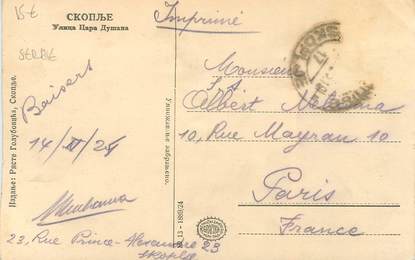 15€
СКОПЉЕ
Улица Цара Душана
Imprimé
SERBIE
Baisers
Monsieur
Albert
10, Rue Mayran 10
Paris
France
23, Rue Prince-Alexandre 23
Skoplje
Издање: Ристе Голубовића, Скопље.
Умножавање забрањено.
13 - 1889/24